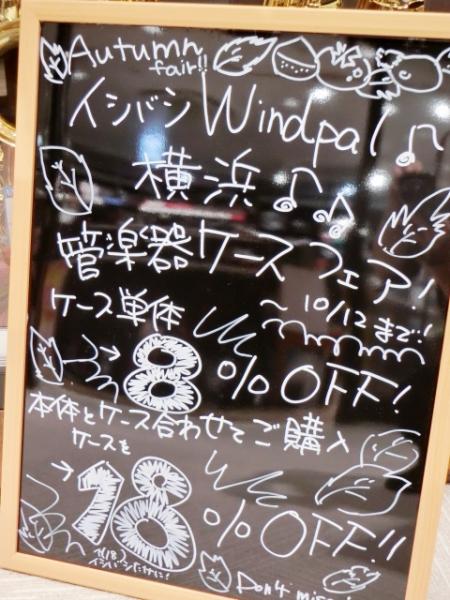 Autumn
fair!!
イシバシ Windpal♪
横浜♪♪
管楽器ケースフェア!
~10/12まで!
ケース単体
→8%OFF!
本体とケース合わせてご購入
ケースを
→18%OFF!!